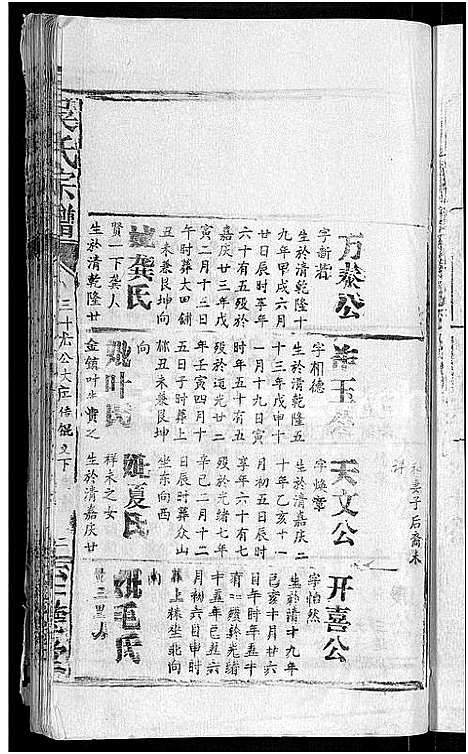 万泰公
字新岩
生於清乾隆十
九年甲戌六月
廿日辰时享年
六十有五殁於
嘉庆廿三年戊
寅二月十三日
午时葬大田铺
丑未兼艮坤向
妣龚氏
贤一下龚人
生於清乾隆廿
字相德
生於清乾隆五
十三年戊申十
一月十九日寅
时享年五十有五
殁於道光廿二
年壬寅四月十
五日子时葬上
丑未兼艮坤
向
妣叶氏
金镇叶生贵之
天文公
字焕章
生於清嘉庆二
十年乙亥十一
月初五日辰时
享年六十有七
殁於光绪七年
辛巳二月十二
日辰时葬众山
坐东向西
妣夏氏
祥禾之女
生於清嘉庆廿
开喜公
字怡然
生於清十九年
己亥十月廿六
日午时年五十
有二殁於光绪
十五年己丑六
月初六日申时
葬上林坐北向
南
妣毛氏
三里人
吴氏宗谱